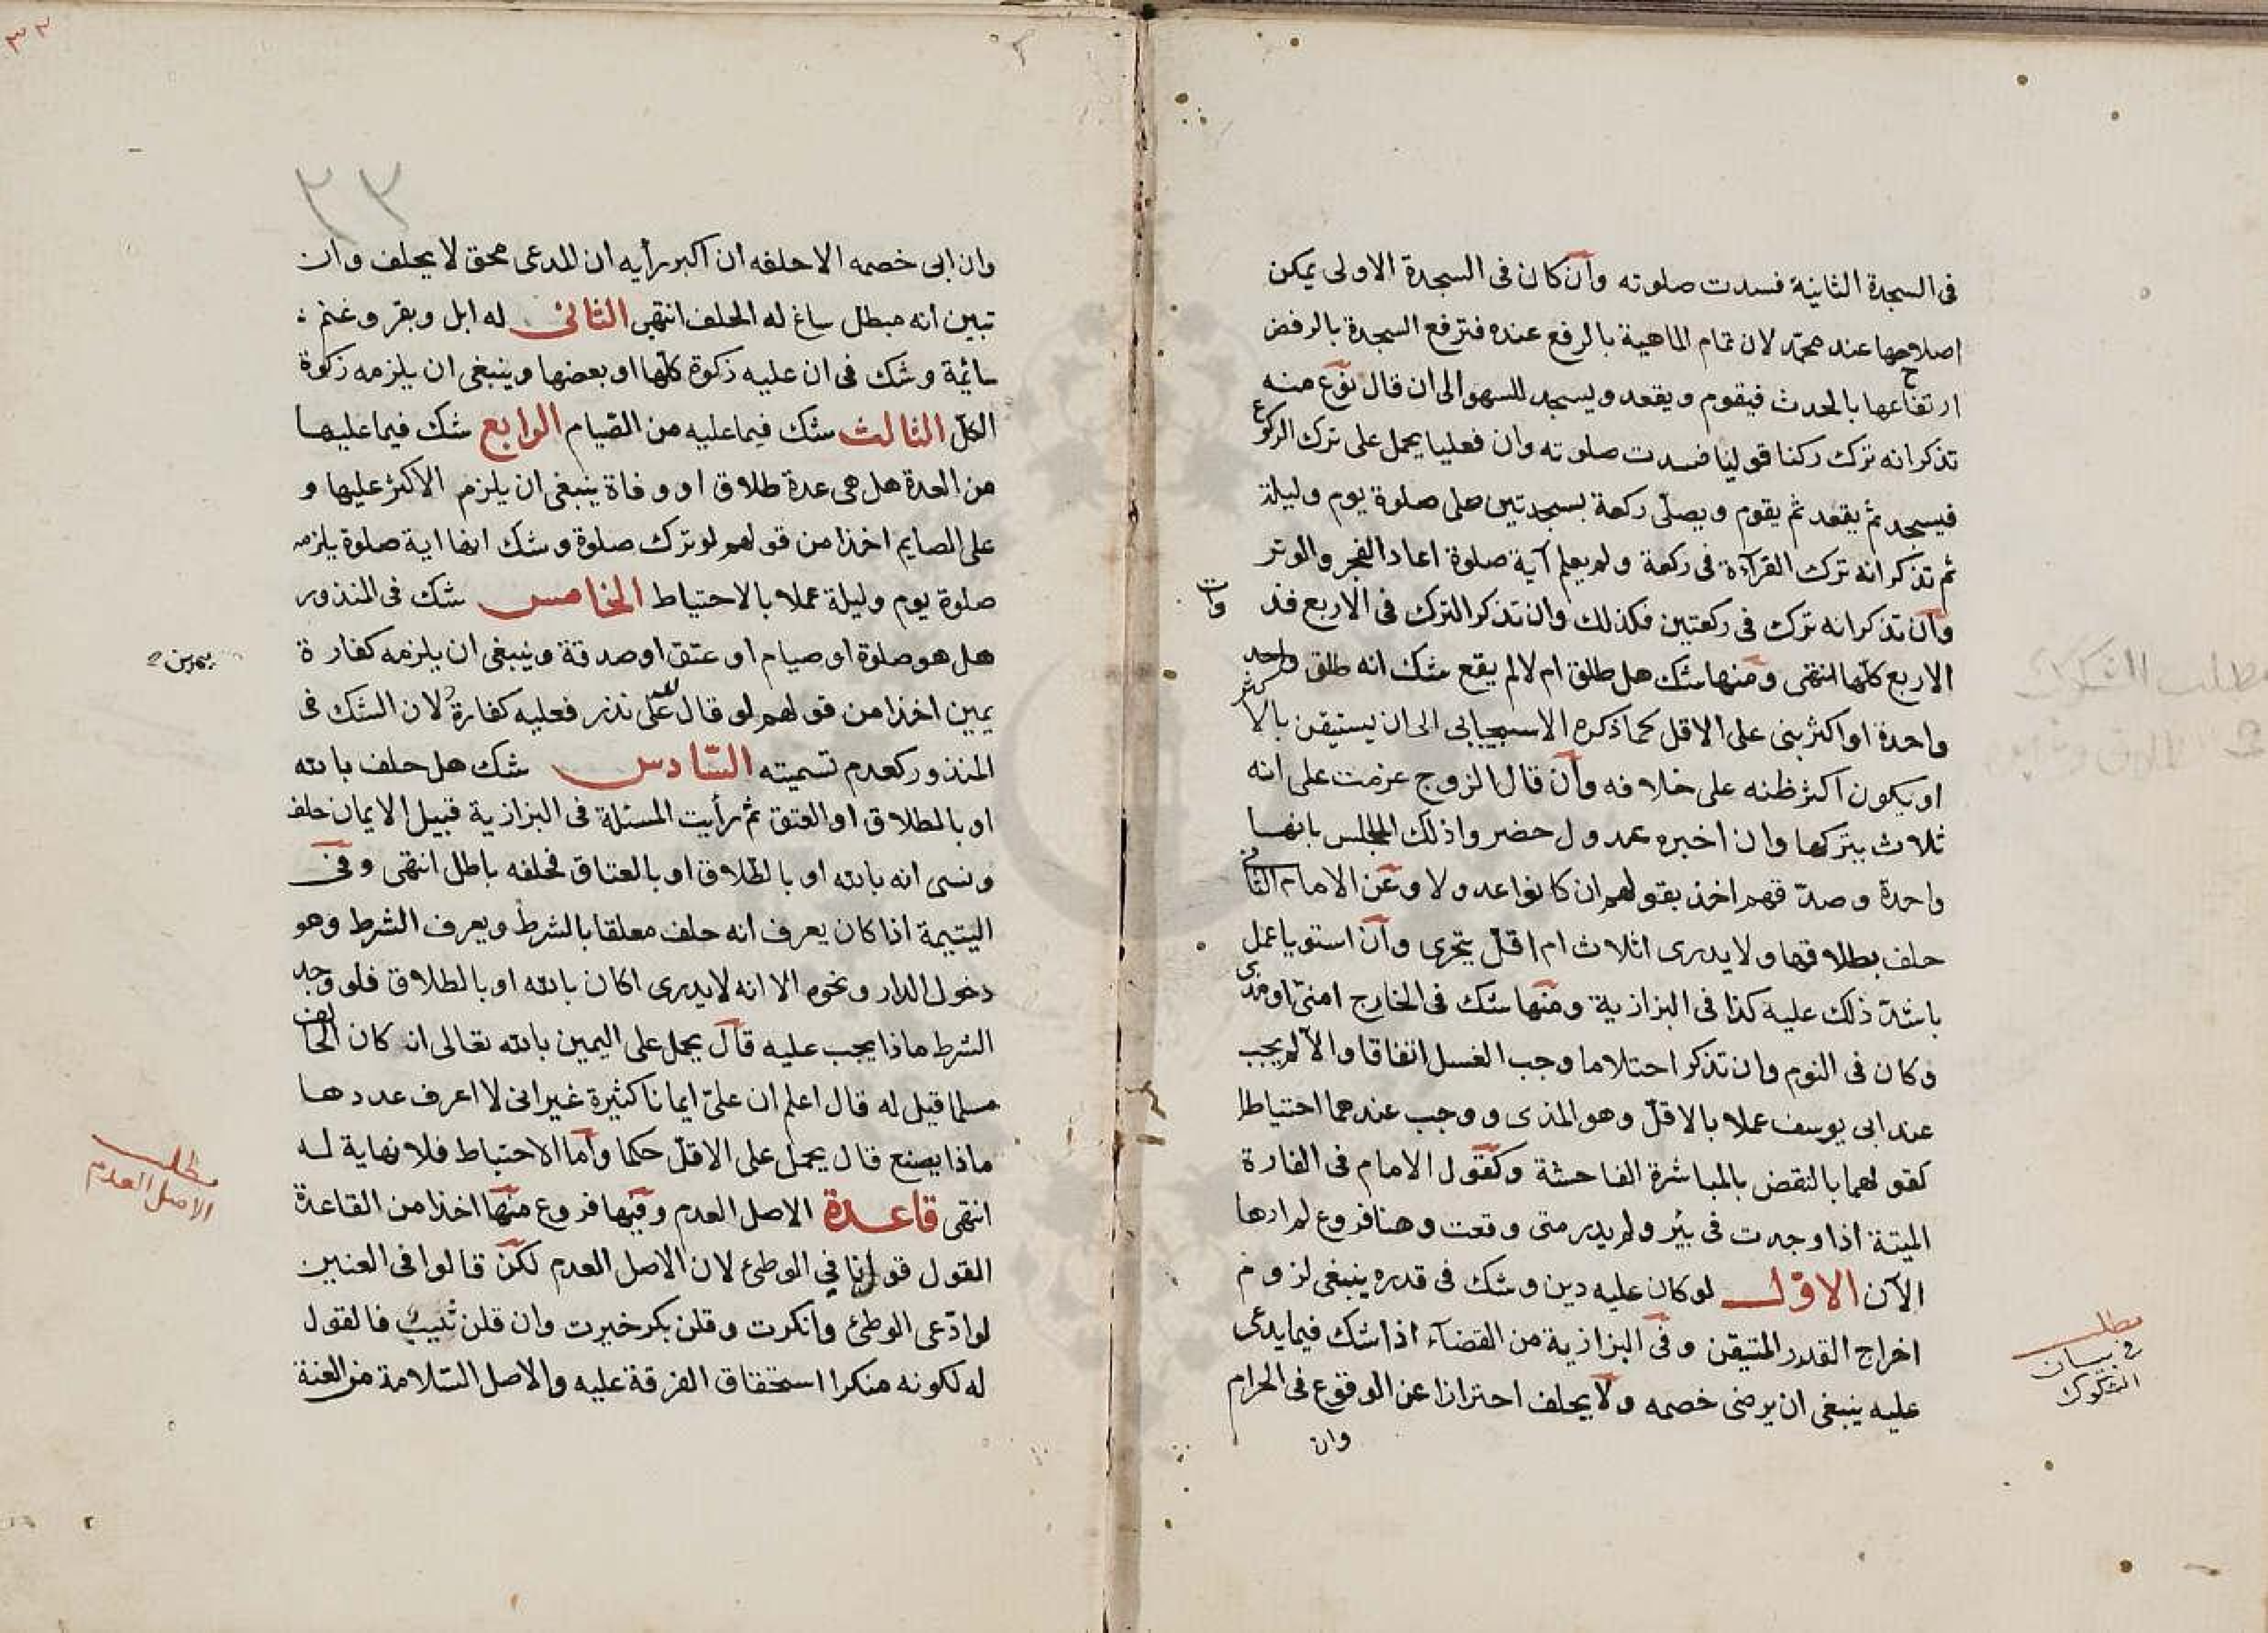 فى السجدة الثانية فسدت صلوته وان كان فى السجدة الاولى يمكن
اصلاحها عند محمد لان تمام الماهية بالرفع عنده فترفع السجدة بالرفض
ارتفاعها بالحدث فيقوم ويقعد ويسجد للسهو الى ان قال نوع منه
ح
تذكر انه ترك ركنا قوليا فسدت صلوته وان فعليا يحمل على ترك الركوع
فيسجد ثم يقعد ثم يقوم ويصلى ركعة بسجدتين صلى صلوة يوم وليلة
ثم تذكر انه ترك القرآءة فى ركعة ولم يعلم آية صلوة اعاد الفجر والوتر
وان تذكر انه ترك فى ركعتين فكذلك وان تذكر الترك فى الاربع فذوات
الاربع كلها انتهى ومنها شك هل طلق ام لا لم يقع شك انه طلق واحد
واحدة او اكثر بنى على الاقل كما ذكره الاسبيجابى الى ان يستيقن بالاكثر
او يكون اكثر ظنه على خلافه وان قال الزوج عزمت على انه
ثلاث يتركها وان اخبره عدول حضروا ذلك المجلس بانها
واحدة وصدقهم اخذ بقولهم ان كانوا عدولا وعن الامام الثانى
حلف بطلاقها ولا يدرى اثلاث ام اقل يتحرى وان استويا عمل
باشد ذلك عليه كذا فى البزازية ومنها شك فى الخارج امنى او مذى
وكان فى النوم وان تذكر احتلاما وجب الغسل اتفاقا والا لم يجب
عند ابى يوسف عملا بالاقل وهو المذى ووجب عندهما احتياطا
كقولهما بالنقض بالمباشرة الفاحشة وكقول الامام فى الفارة
الميتة اذا وجدت فى بئر ولم يدر متى وقعت وهنا فروع لم ارها
الآن الاول لو كان عليه دين وشك فى قدره ينبغى لزوم
اخراج القدر المتيقن وفى البزازية من القضآء اذا شك فيما يدعى
عليه ينبغى ان يرضى خصمه ولا يحلف احترازا عن الوقوع فى الحرام
وان
مطلب
فى بيان
الشكوك
٣٣
وان ابى خصمه الا حلفه ان اكبر رأيه ان المدعى محق لا يحلف وان
تبين انه مبطل ساغ له الحلف انتهى الثانى له ابل وبقر وغنم
سائمة وشك فى ان عليه زكوة كلها او بعضها وينبغى ان يلزمه زكوة
الكل الثالث شك فيما عليه من الصيام الرابع شك فيما عليها
من العدة هل هى عدة طلاق او وفاة ينبغى ان يلزم الاكثر عليها و
على الصايم اخذا من قولهم لو ترك صلوة وشك انها اية صلوة يلزمه
صلوة يوم وليلة عملا بالاحتياط الخامس شك فى المنذور
هل هو صلوة او صيام او عتق او صدقة وينبغى ان يلزمه كفارة
يمين اخذا من قولهم لو قال لله على نذر فعليه كفارة لان الشك فى
المنذور كعدم تسميته السادس شك هل حلف بالله
او بالطلاق او العتق ثم رأيت المسئلة فى البزازية قبيل الايمان حلف
ونسى انه بالله او بالطلاق او بالعتاق فحلفه باطل انتهى وفى
اليتيمة اذا كان يعرف انه حلف معلقا بالشرط ويعرف الشرط وهو
دخول الدار ونحوه الا انه لا يدرى اكان بالله او بالطلاق فلو وجد
الشرط ماذا يجب عليه قال يحمل على اليمين بالله تعالى ان كان الحالف
مسلما قيل له قال اعلم ان على ايمانا كثيرة غير انى لا اعرف عددها
ماذا يصنع قال يحمل على الاقل حكما واما الاحتياط فلا نهاية له
انتهى قاعدة الاصل العدم وفيها فروع منها اخذا من القاعدة
القول قول نافي الوطئ لان الاصل العدم لكن قالوا فى العنين
لو ادعى الوطئ وانكرت وقلن بكر خيرت وان قلن ثيب فالقول
له لكونه منكرا استحقاق الفرقة عليه والاصل السلامة من العنة
مطلب
الاصل العدم